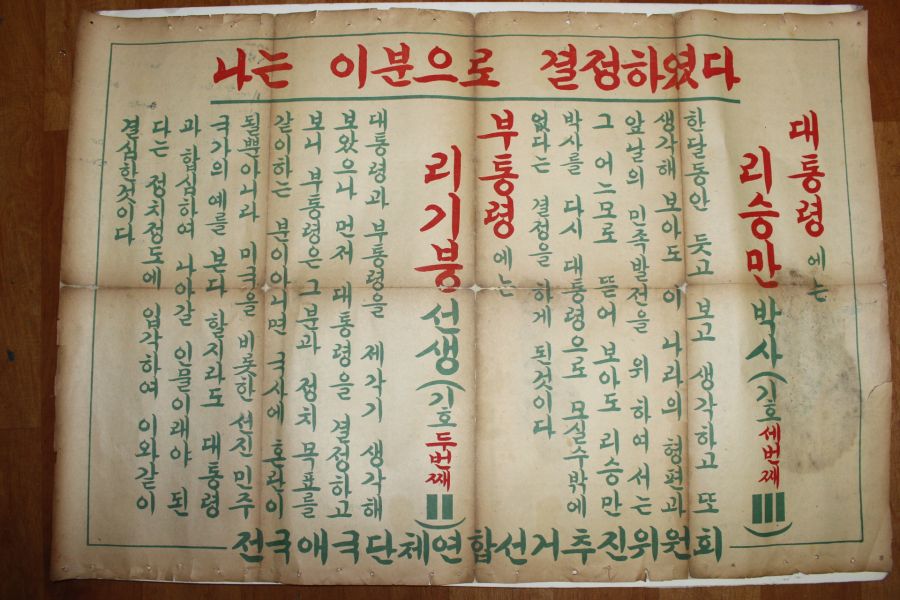 나는 이분으로 결정하였다
대통령에는
리승만 박사 (기호 세번째 III)
한달동안 듯고 보고 생각하고 또
생각해 보아도 이 나라의 형편과
앞날의 민족발전을 위하여서는
그 어느모로 뜯어 보아도 리승만
박사를 다시 대통령으로 모실수밖에
없다는 결정을 하게 된것이다
부통령에는
리기붕 선생 (기호 두번째 II)
대통령과 부통령을 제각기 생각해
보왔으나 먼저 대통령을 결정하고
보니 부통령은 그분과 정치 목표를
같이하는 분이아니면 국사에 혼란이
될뿐아니라 미국을 비롯한 선진 민주
국가의 예를 본다 할지라도 대통령
과 합심하여 나아갈 인물이래야 된
다는 정치정도에 입각하여 이와같이
결심한것이다
전국애국단체연합선거추진위원회